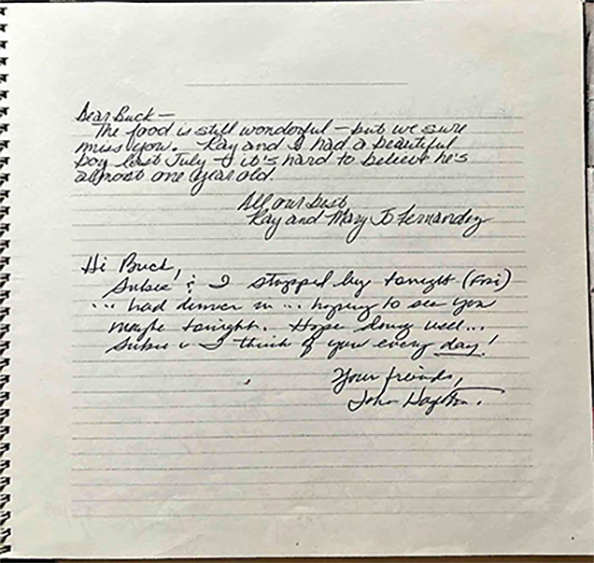 Dear Buck —
The food is still wonderful — but we sure
miss you. Ray and I had a beautiful
boy last July & it's hard to believe he's
almost one year old.
All our best
Ray and Mary Jo Fernandez
Hi Buck,
& I stopped by tonight (Fri)
... had dinner ... hoping to see you
maybe tonight. Hope doing well...
I think of you every day!
Your friends,
John